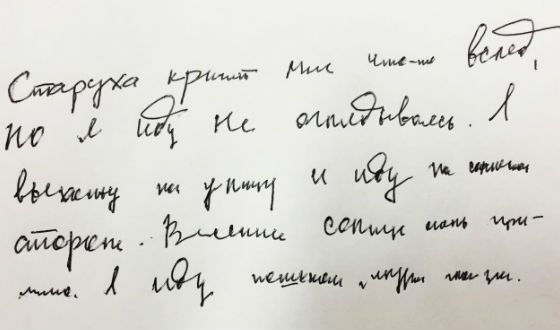 Старуха кричит мне что-то вслед,
но я иду не оглядываясь. Я
выхожу на улицу и иду по солнечной
стороне. Весеннее солнце очень при-
ятно. Я иду пешком, щурю глаза.